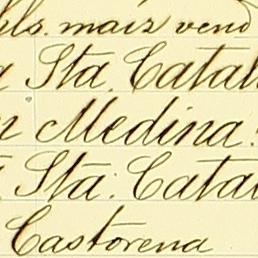 hls. maiz vend
Sta. Catal
Medina.
Sta. Catal
Castorena